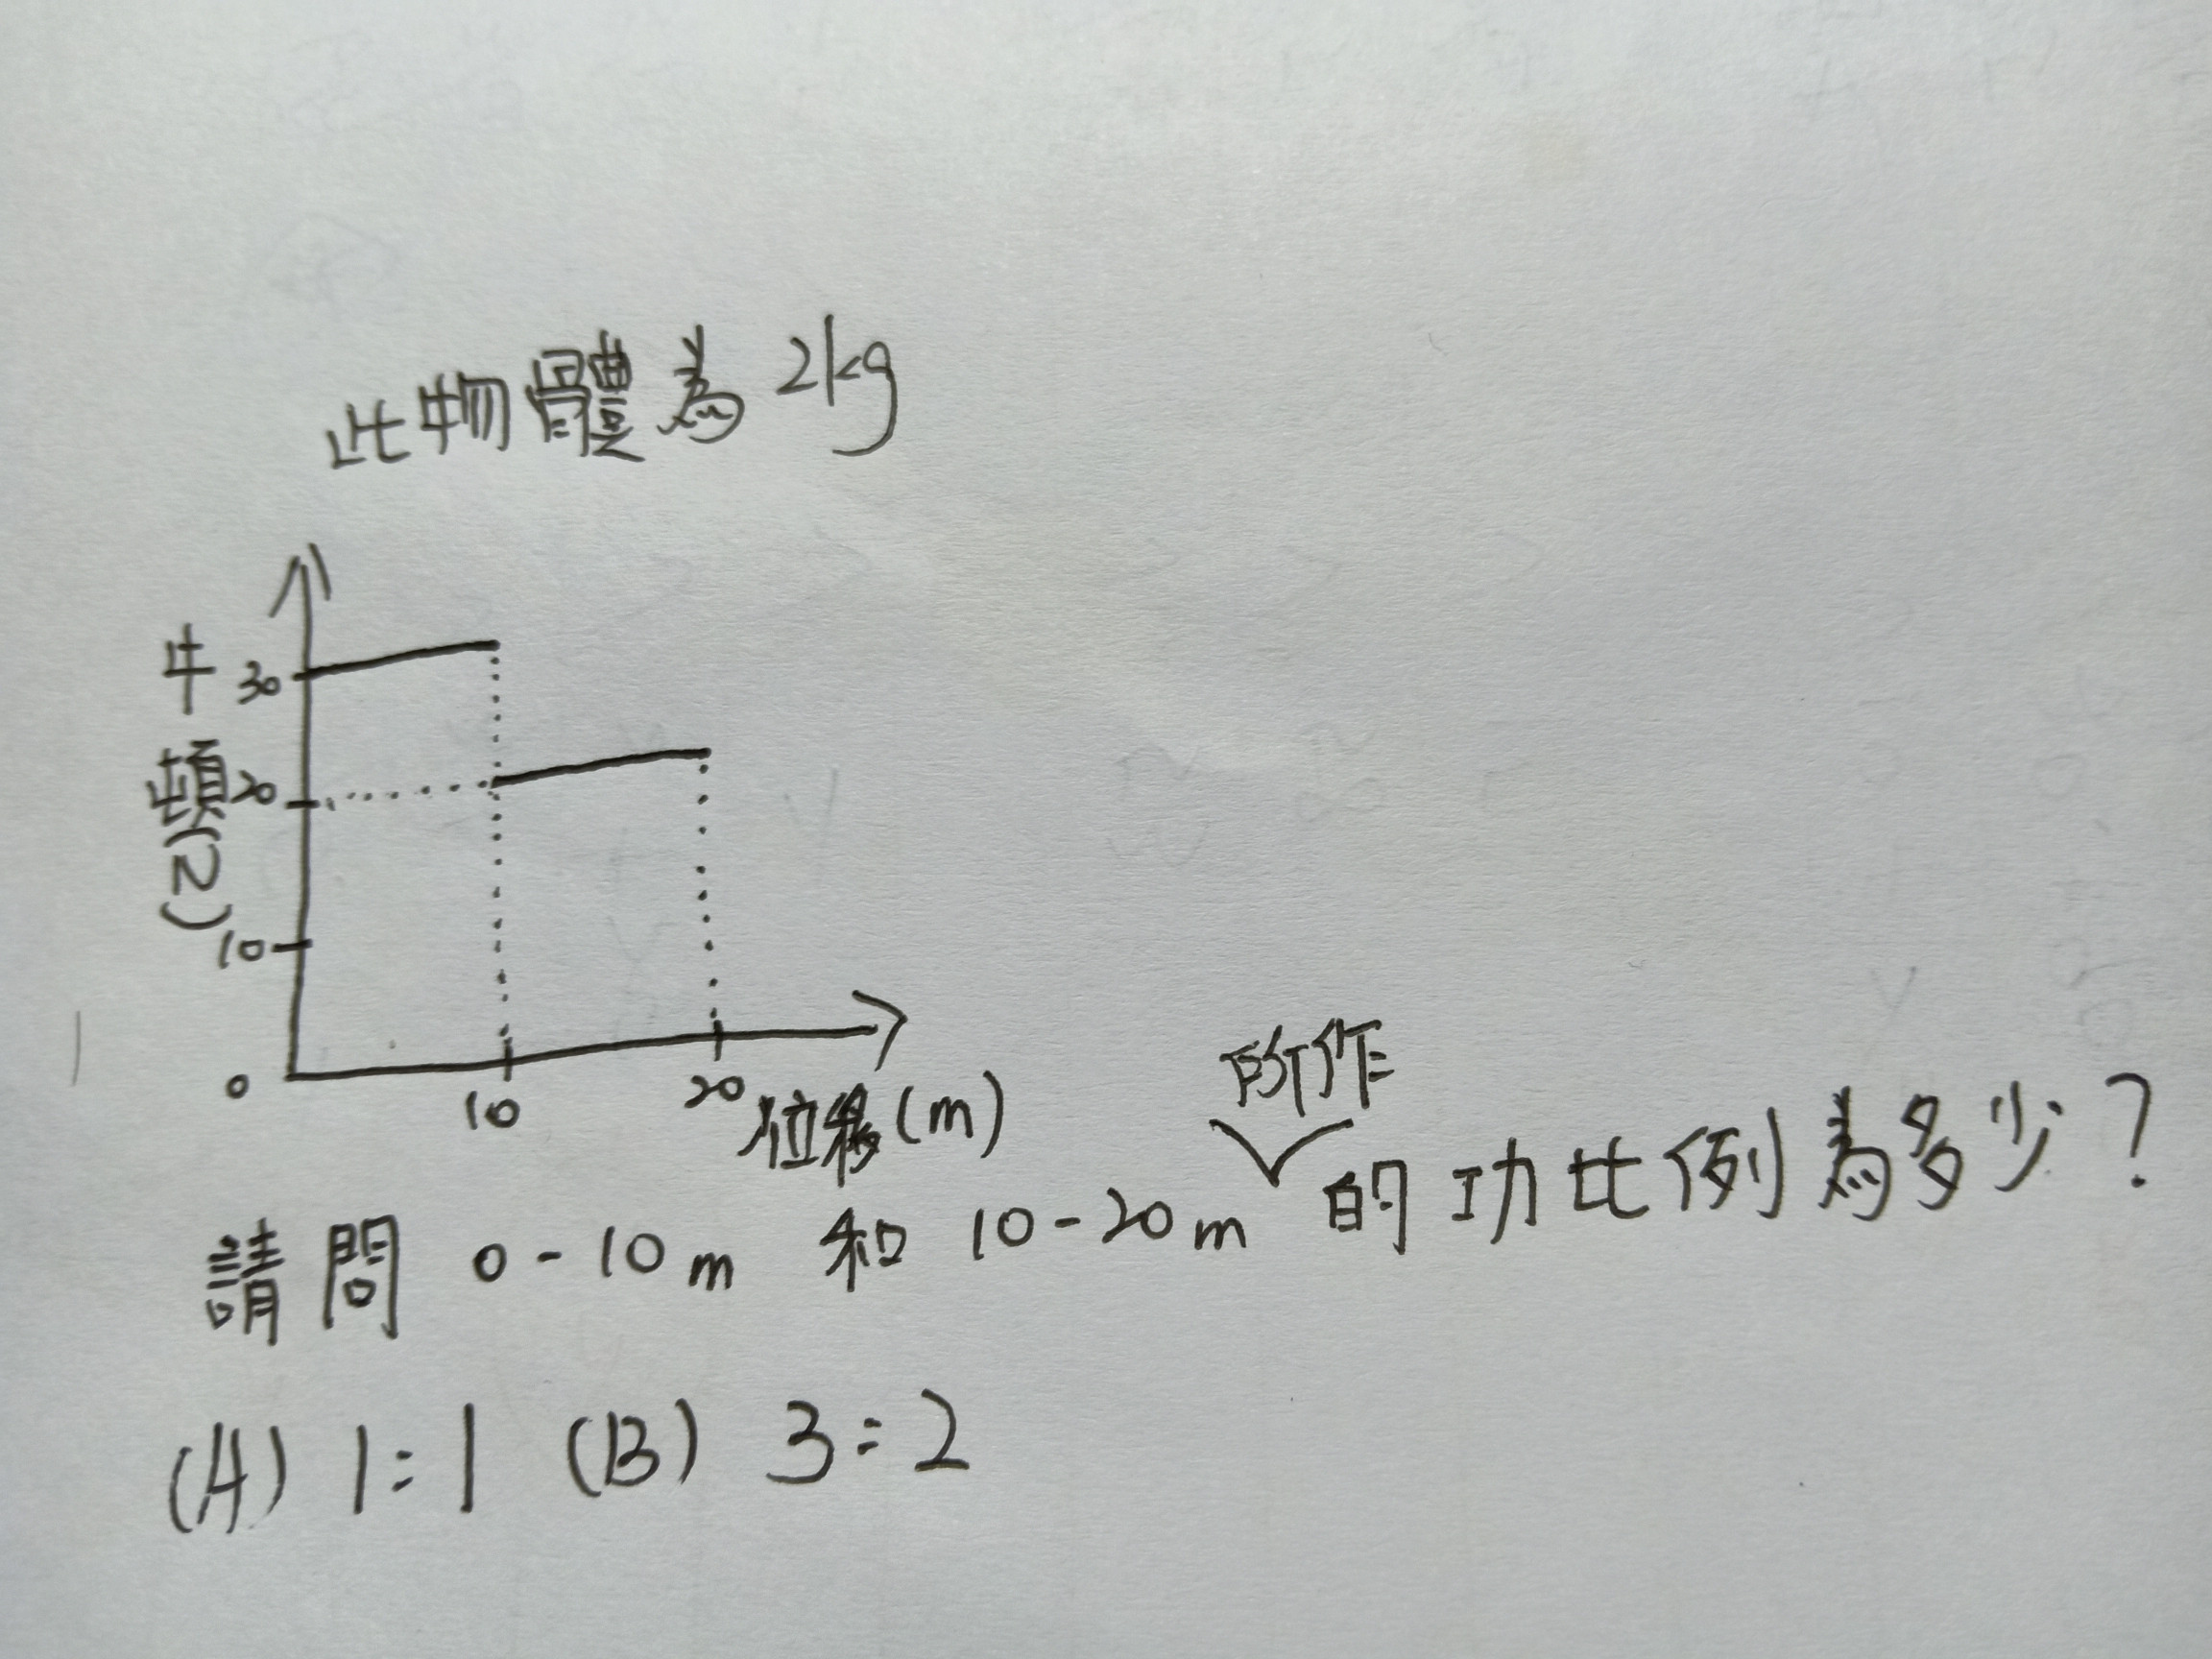 此物體為 2kg
牛頓(N)
30
20
10
0
10
20
位移(m)
請問 0-10m 和 10-20m 所作的功比例為多少?
(A) 1:1 (B) 3:2